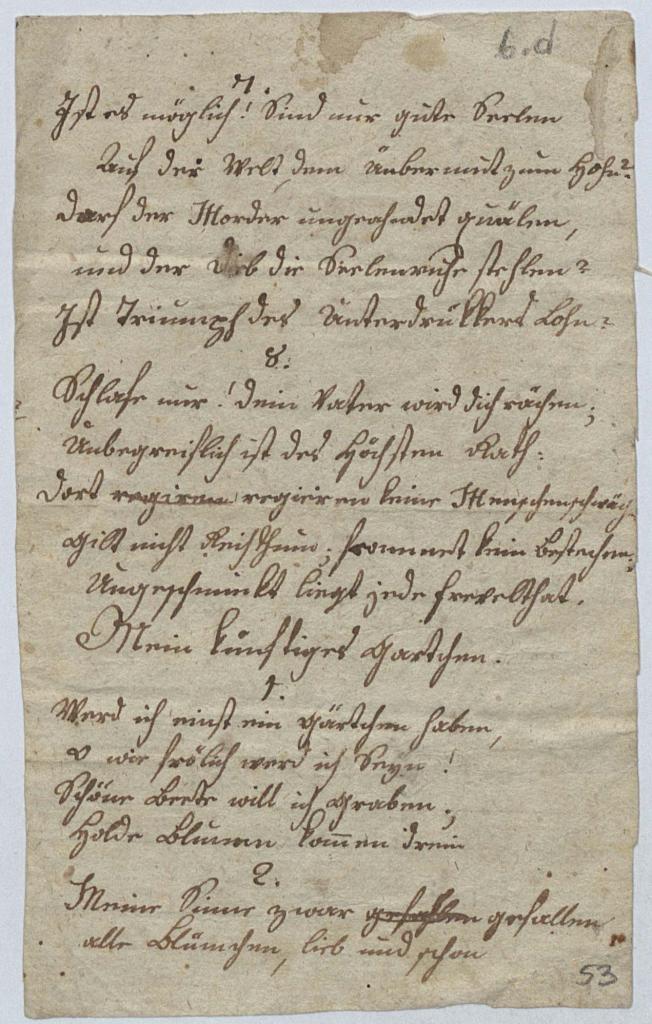 6.d
7.
Ist es möglich! Sind nur gute Seelen
Auf der Welt, dem Uibermut zum Hohn?
Darf der Morder ungeahndet quälen,
und der Dib die Seelenruhe stehlen?
Ist Triumpf des Unterdrükkers Lohn?
8.
Schlafe nur! dein Vater wird dich rächen;
Unbegreiflich ist des Höchsten Rath:
Dort regiren regieren keine Menschenschwäch
Gilt nicht Reichthum; frommet kein Bestechen;
Ungeschminkt liegt jede Frevelthat.
Mein künftiges Gartchen.
1.
Werd ich einst ein Gärtchen haben,
o wie frölich werd ich Seyn!
Schöne Beete will ich Graben;
Holde Blumen kommen drein
2.
Meine Sinne zwar gefahlen gefallen
alle Blümchen, lieb und schon
53